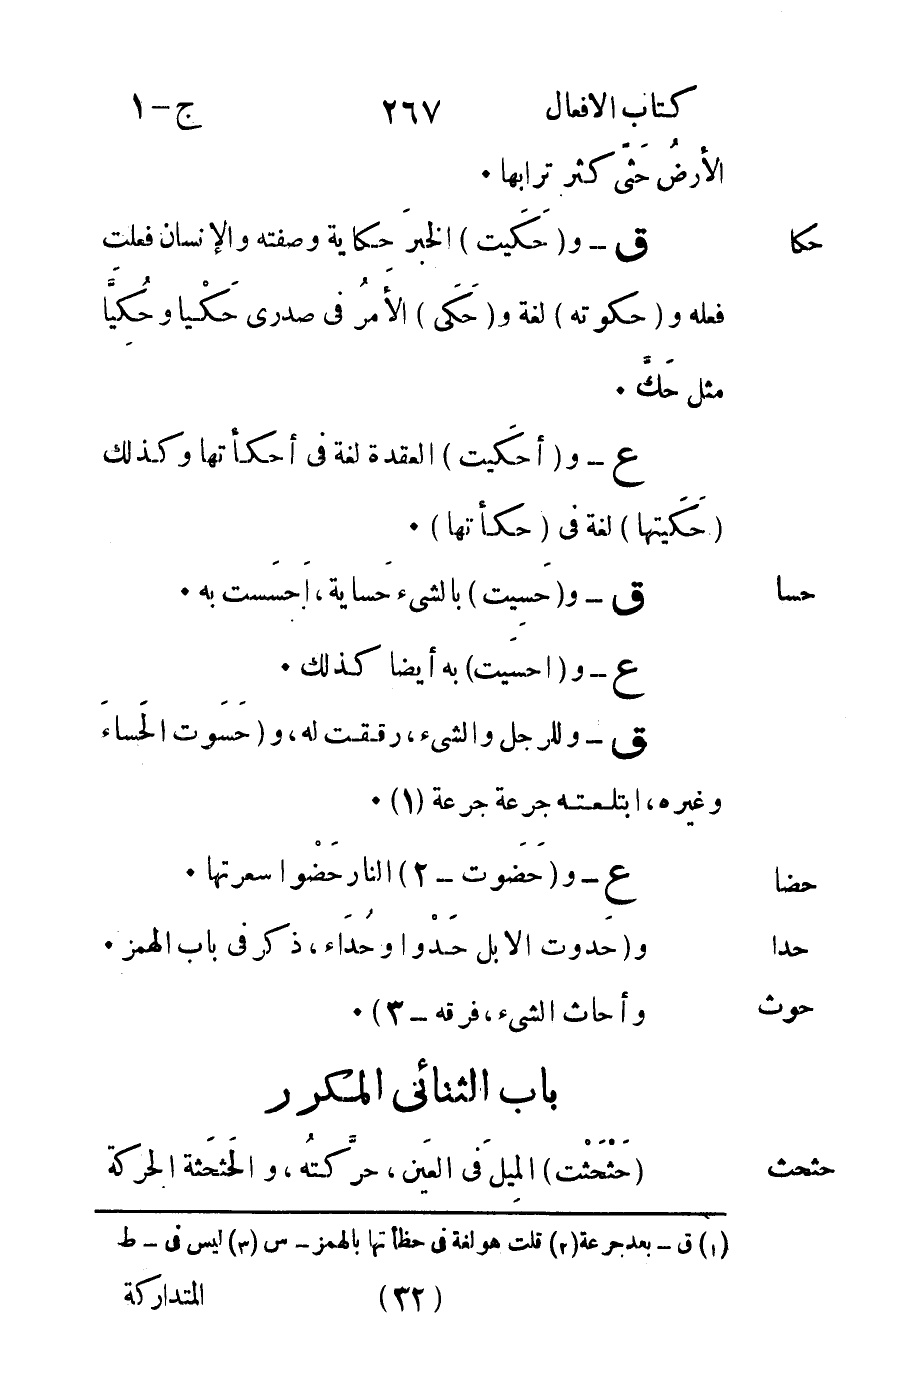 كتاب الافعال ٢٦٧ ج-١
الأرضُ حَثًى كثر ترابها ٠
حكا ق - و( حَكَيت ) الخبرَ حكاية وصفته والإنسان فعلت
فعله و ( حكوته ) لغة و( حَكَى ) الأَمرُ فى صدرى حَكْيا و حُكِيًّا
مثل حَكَّ ٠
ع - و ( أحكَيت ) العقدة لغة فى أحكأتها وكذلك
( حَكَيتها ) لغة فى ( حكأتها ) ٠
حسا ق - و( حَسِيت ) بالشىء حَساية ، أحسَست به ٠
ع - و ( احسَيت) به أيضا كذلك ٠
ق - وللرجل والشىء، رققت له، و ( حَسَوت الحَساءَ
وغيره، ابتلعته جرعة جرعة (١) ٠
حضا ع - و ( حَضَوت - ٢ ) النار حَضْوا سعرتها ٠
حدا و ( حَدوت الابل حَدْوا وحُدَاء ، ذكر فى باب الهمز ٠
حوث وأحاث الشىء، فرقه - ٣ ) ٠
باب الثنائى المكرر
حثحث (حَثْحَثْت) المِيلَ فى العَين ، حرَّكتُه ، و الحَثحَثة الحركة
(١) ق - بعد جرعة (٢) قلت هو لغة فى حظأتها بالهمز - س (٣) ليس فى - ط
(٣٢) المتداركة